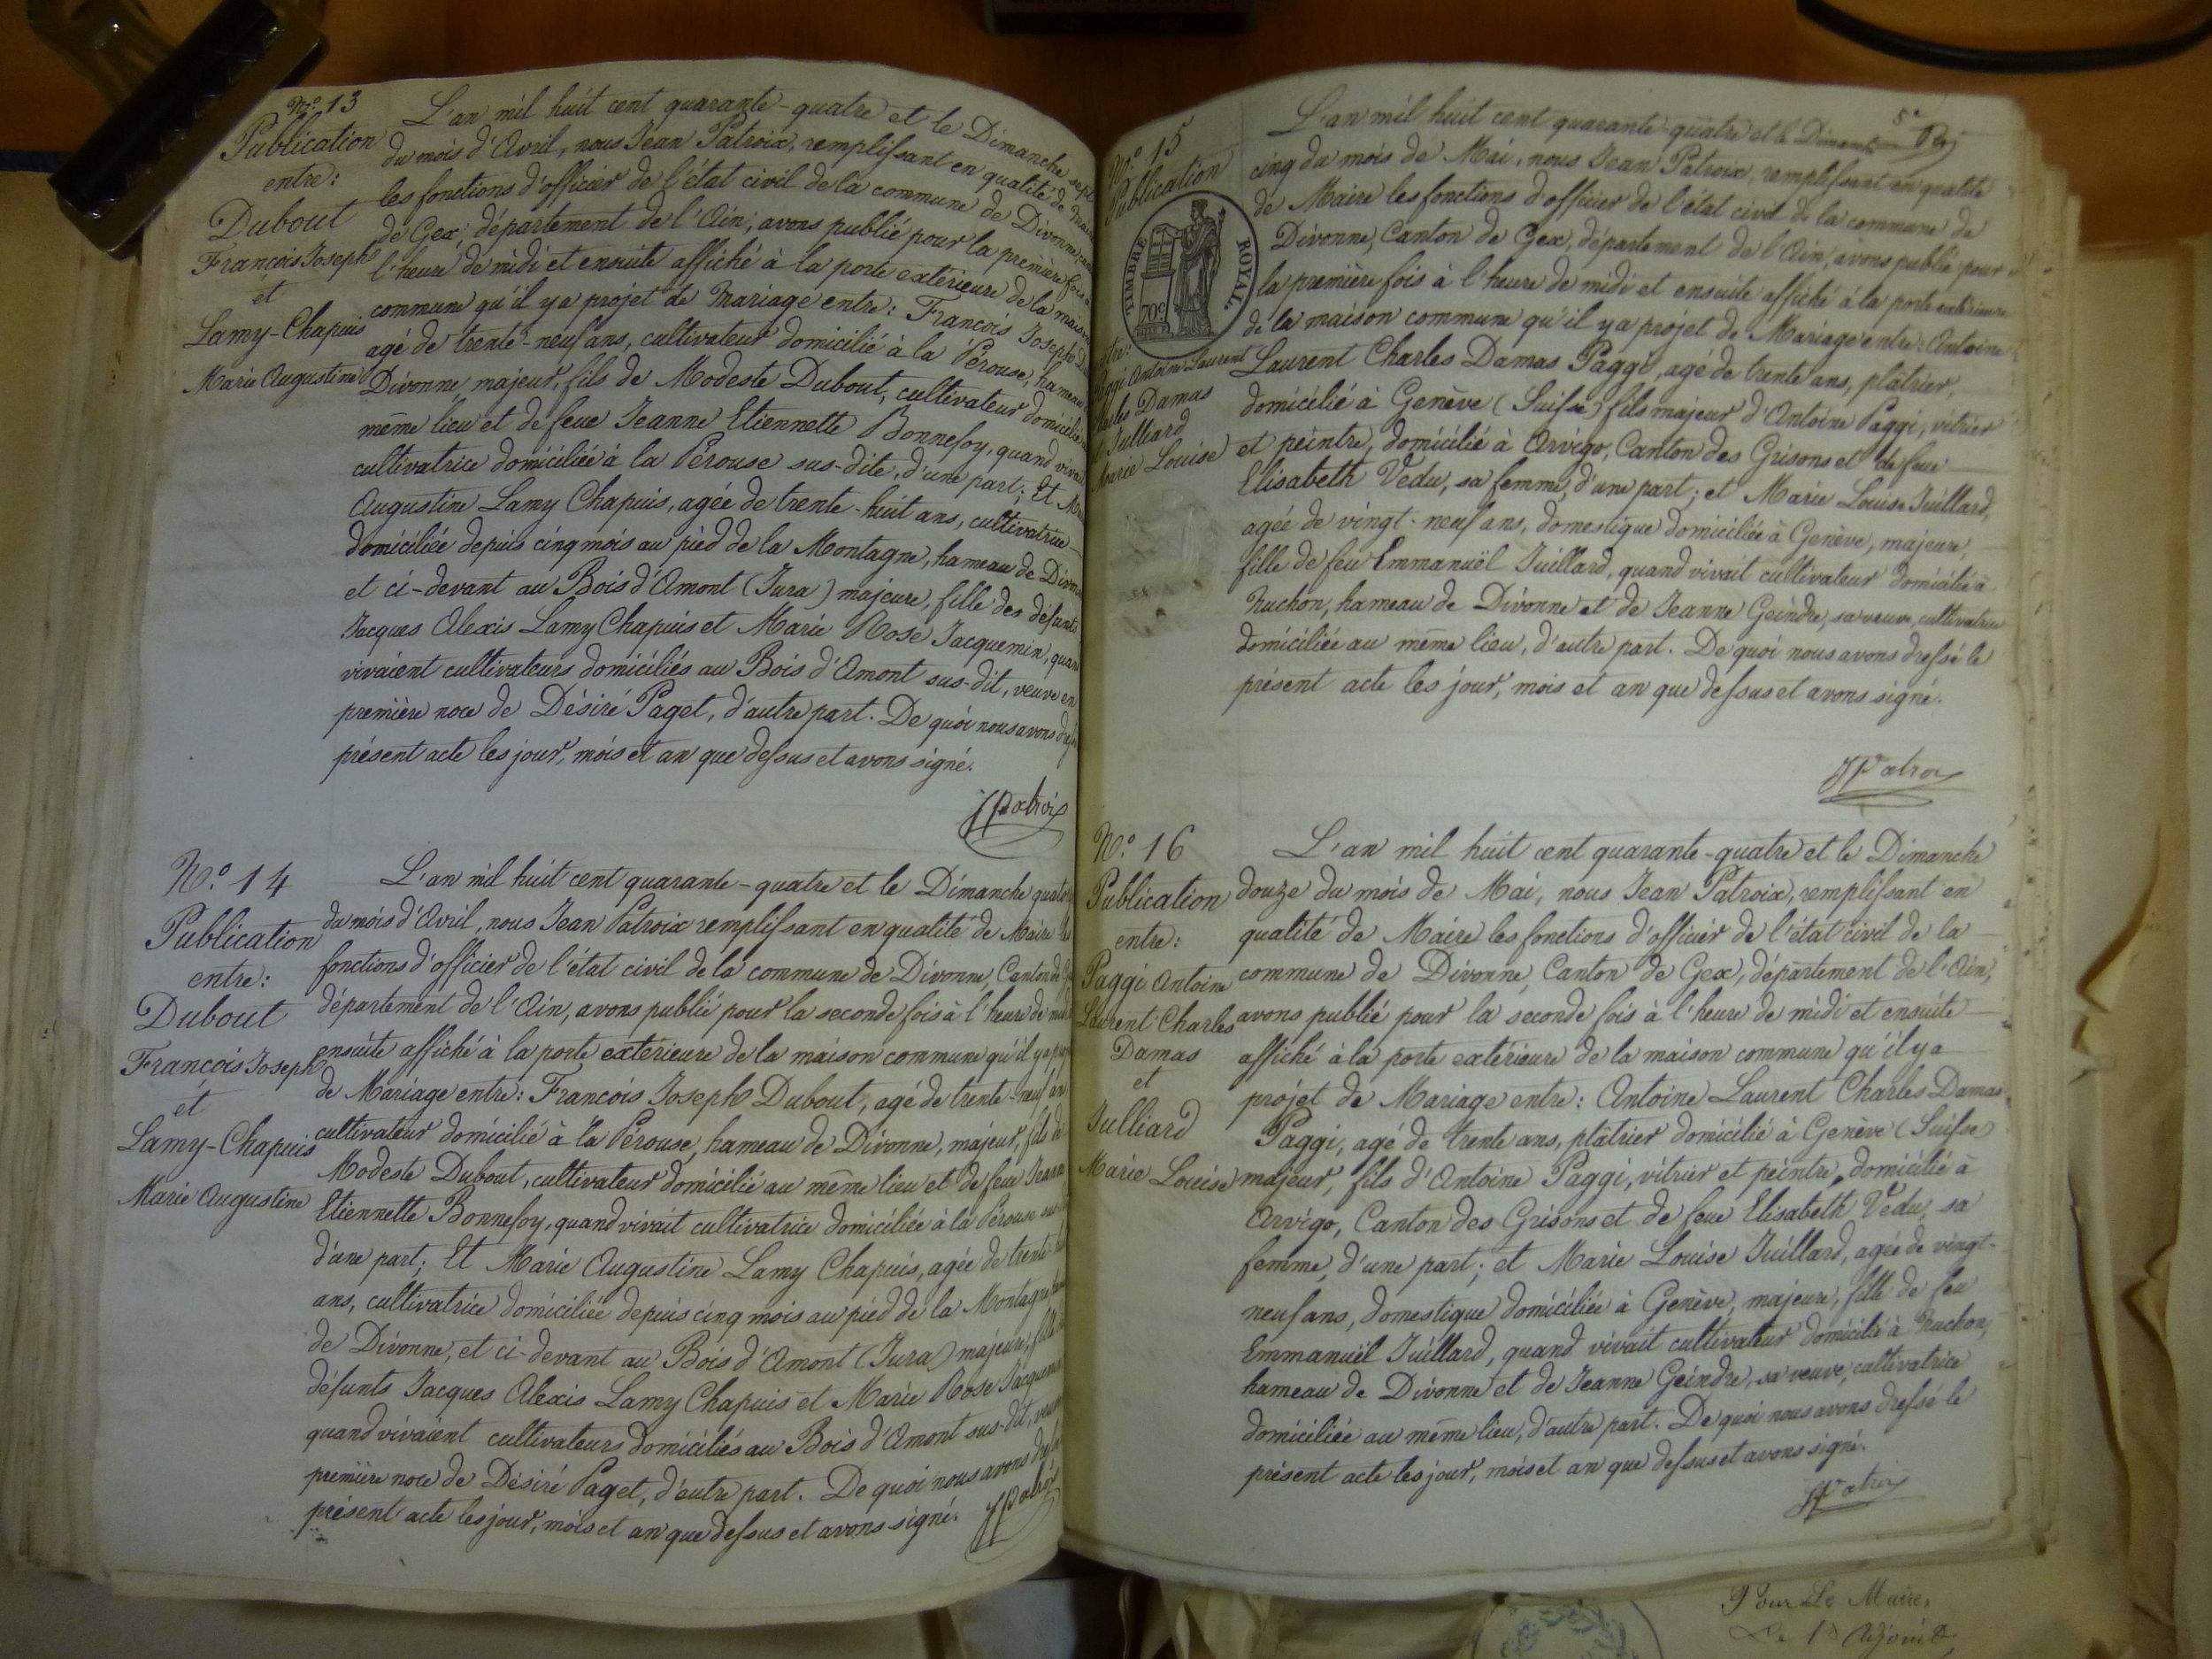 N.° 13
Publication
entre:
Dubout
François Joseph
et
Lamy-Chapuis
Marie Augustine
L'an mil huit cent quarante-quatre et le Dimanche sept
du mois d'Avril, nous Jean Patroix, remplissant en qualité de Maire
les fonctions d'officier de l'état civil de la commune de Divonne,
de Gex, département de l'Ain, avons publié pour la première fois à
l'heure de midi et ensuite affiché à la porte extérieure de la maison
commune qu'il y a projet de Mariage entre: François Joseph
agé de trente-neuf ans, cultivateur domicilié à la Pérouse, hameau
Divonne, majeur, fils de Modeste Dubout, cultivateur domicilié
même lieu et de feue Jeanne Etiennette Bonnefoy, quand vivait
cultivatrice domiciliée à la Pérouse sus-dite, d'une part; Et
Augustine Lamy Chapuis, agée de trente-huit ans, cultivatrice
domiciliée depuis cinq mois au pied de la Montagne, hameau de
et ci-devant au Bois d'Amont (Jura) majeure, fille des défunts
Jacques Alexis Lamy Chapuis et Marie Rose Jacquemin,
vivaient cultivateurs domiciliés au Bois d'Amont sus-dit, veuve en
première noce de Désiré Paget, d'autre part. De quoi nous avons
présent acte les jour, mois et an que dessus et avons signé.
JPatroix
N.° 14
Publication
entre:
Dubout
François Joseph
et
Lamy-Chapuis
Marie Augustine
L'an mil huit cent quarante-quatre et le Dimanche
du mois d'Avril, nous Jean Patroix remplissant en qualité de Maire les
fonctions d'officier de l'état civil de la commune de Divonne, Canton de
département de l'Ain, avons publié pour la seconde fois à l'heure de midi
ensuite affiché à la porte extérieure de la maison commune qu'il y a
de Mariage entre: François Joseph Dubout, agé de trente-neuf ans
cultivateur domicilié à la Pérouse, hameau de Divonne, majeur, fils de
Modeste Dubout, cultivateur domicilié au même lieu et de feue Jeanne
Etiennette Bonnefoy, quand vivait cultivatrice domiciliée à la Pérouse
d'une part; Et Marie Augustine Lamy Chapuis, agée de trente
ans, cultivatrice domiciliée depuis cinq mois au pied de la Montagne,
de Divonne, et ci-devant au Bois d'Amont (Jura) majeure, fille
défunts Jacques Alexis Lamy Chapuis et Marie Rose Jacquemin
quand vivaient cultivateurs domiciliés au Bois d'Amont sus-dit, veuve
première noce de Désiré Paget, d'autre part. De quoi nous avons
présent acte les jour, mois et an que dessus et avons signé.
JPatroix
5e
N.° 15
Publication
TIMBRE ROYAL
70c
entre:
Paggi Antoine Laurent
Charles Damas
Julliard
Marie Louise
L'an mil huit cent quarante-quatre et le Dimanche
cinq du mois de Mai, nous Jean Patroix, remplissant en qualité
de Maire les fonctions d'officier de l'état civil de la commune de
Divonne, Canton de Gex, département de l'Ain, avons publié pour
la première fois à l'heure de midi et ensuite affiché à la porte extérieure
de la maison commune qu'il y a projet de Mariage entre: Antoine
Laurent Charles Damas Paggi, agé de trente ans, plâtrier,
domicilié à Genève (Suisse) fils majeur d'Antoine Paggi, vitrier
et peintre, domicilié à Arvigo, Canton des Grisons et de feue
Elisabeth Vedu, sa femme, d'une part; et Marie Louise Juillard,
agée de vingt-neuf ans, domestique domiciliée à Genève, majeure,
fille de feu Emmanuël Juillard, quand vivait cultivateur domicilié à
Ruchon, hameau de Divonne et de Jeanne Geindre, sa veuve, cultivatrice
domiciliée au même lieu, d'autre part. De quoi nous avons dressé le
présent acte les jour, mois et an que dessus et avons signé.
JPatroix
N.° 16
Publication
entre:
Paggi Antoine
Laurent Charles
Damas
et
Julliard
Marie Louise
L'an mil huit cent quarante-quatre et le Dimanche
douze du mois de Mai, nous Jean Patroix, remplissant en
qualité de Maire les fonctions d'officier de l'état civil de la
commune de Divonne, Canton de Gex, département de l'Ain,
avons publié pour la seconde fois à l'heure de midi et ensuite
affiché à la porte extérieure de la maison commune qu'il y a
projet de Mariage entre: Antoine Laurent Charles Damas
Paggi, agé de trente ans, plâtrier domicilié à Genève (Suisse)
majeur, fils d'Antoine Paggi, vitrier et peintre, domicilié à
Arvigo, Canton des Grisons et de feue Elisabeth Vedu, sa
femme, d'une part; et Marie Louise Juillard, agée de vingt-
neuf ans, domestique domiciliée à Genève, majeure, fille de feu
Emmanuël Juillard, quand vivait cultivateur domicilié à Ruchon,
hameau de Divonne et de Jeanne Geindre, sa veuve, cultivatrice
domiciliée au même lieu, d'autre part. De quoi nous avons dressé le
présent acte les jour, mois et an que dessus et avons signé.
JPatroix
Pour Le Maire,